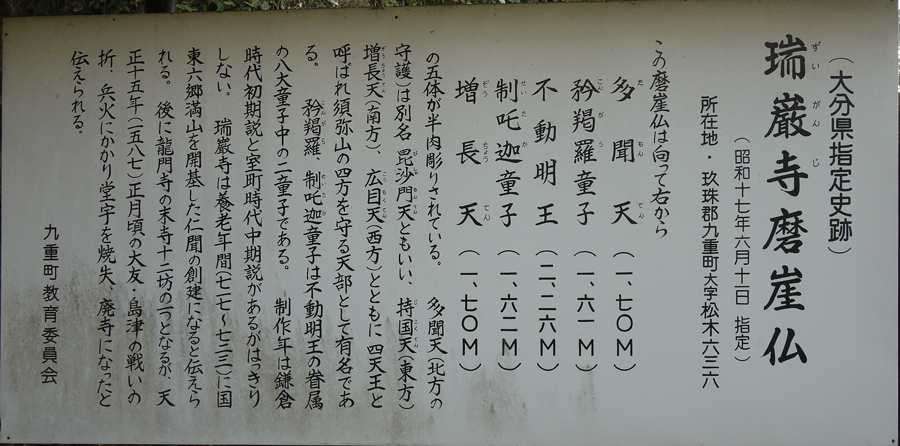 (大分県指定史跡)
瑞巌寺磨崖仏
ずいがんじ
(昭和十七年六月十二日 指定)
所在地・玖珠郡九重町大字松木六三六
この磨崖仏は向って右から
多聞天(一、七〇M)
たもんてん
矜羯羅童子(一、六一M)
こんがら
不動明王(二、二六M)
制吒迦童子(一、六二M)
せいたか
増長天(一、七〇M)
ぞうちょうてん
の五体が半肉彫りされている。 多聞天(北方の
守護)は別名 毘沙門天ともいい、持国天(東方)
増長天(南方)、広目天(西方)とともに 四天王と
呼ばれ須弥山の四方を守る天部として有名であ
る。 矜羯羅、制吒迦童子は不動明王の眷属
の八大童子中の二童子である。 制作年は鎌倉
時代初期説と室町時代中期説があるがはっきり
しない。 瑞巌寺は養老年間(七一七〜七二三)に国
東六郷満山を開基した仁聞の創建になると伝えら
れる。 後に龍門寺の末寺十二坊の一つとなるが、天
正十五年(一五八七)正月頃の大友・島津の戦いの
折、兵火にかかり堂宇を焼失、廃寺になったと
伝えられる。
九重町教育委員会